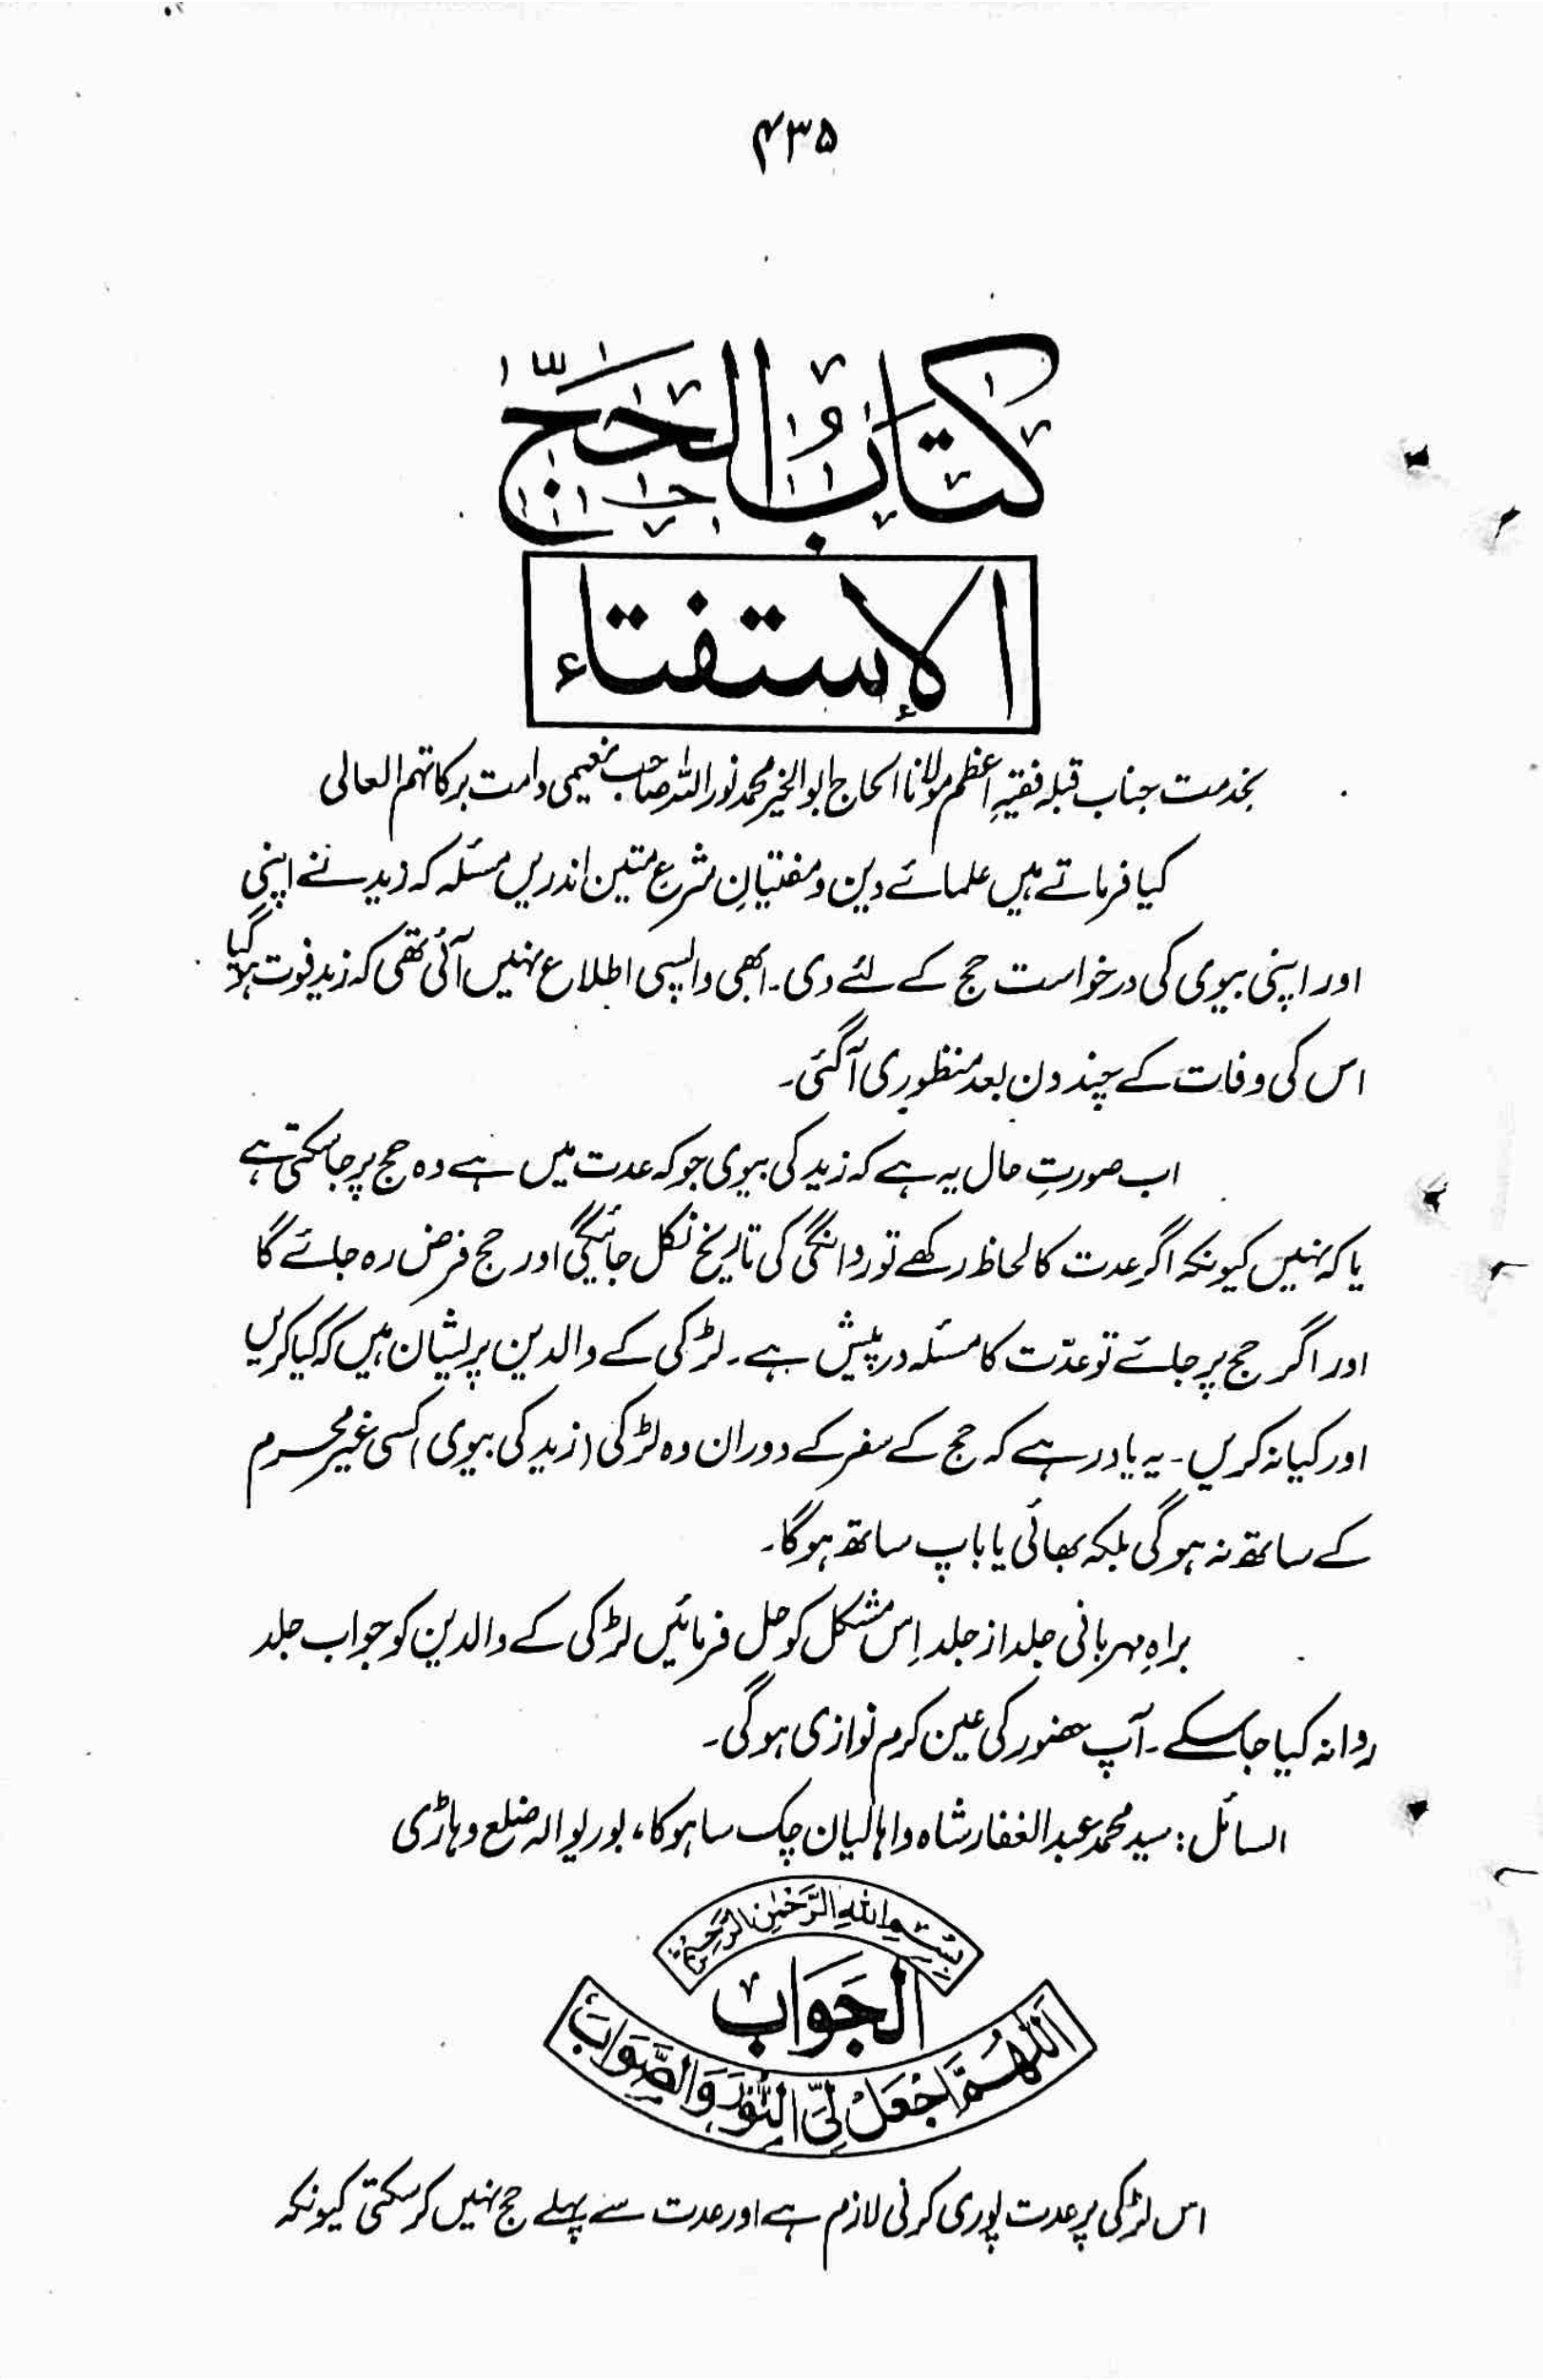 ۴۳۵
کتابُ الحَجّ
الإستفتاء
بخدمت جناب قبلہ فقیہِ اعظم مولانا الحاج ابوالخیر محمد نور اللہ صاحب نعیمی دامت برکاتہم العالی
کیا فرماتے ہیں علمائے دین و مفتیانِ شرع متین اندریں مسئلہ کہ زید نے اپنی
اور اپنی بیوی کی درخواست حج کے لئے دی۔ ابھی واپسی اطلاع نہیں آئی تھی کہ زید فوت ہو گیا
اس کی وفات کے چند دن بعد منظوری آگئی۔
اب صورتِ حال یہ ہے کہ زید کی بیوی جو کہ عدت میں ہے وہ حج پر جا سکتی ہے
یا کہ نہیں کیونکہ اگر عدت کا لحاظ رکھے تو روانگی کی تاریخ نکل جائیگی اور حج فرض رہ جائے گا
اور اگر حج پر جائے تو عدّت کا مسئلہ درپیش ہے۔ لڑکی کے والدین پریشان ہیں کہ کیا کریں
اور کیا نہ کریں۔ یہ یاد رہے کہ حج کے سفر کے دوران وہ لڑکی (زید کی بیوی) کسی غیر محرم
کے ساتھ نہ ہوگی بلکہ بھائی یا باپ ساتھ ہوگا۔
براہِ مہربانی جلد از جلد اِس مشکل کو حل فرمائیں لڑکی کے والدین کو جواب جلد
روانہ کیا جا سکے۔ آپ حضور کی عین کرم نوازی ہوگی۔
السائل: سید محمد عبدالغفار شاہ و اہالیان چک ساہوکا، بوریوالہ ضلع وہاڑی
بِسْمِ اللہِ الرَّحْمٰنِ الرَّحِیْمِ
الجَوَابُ
اَللّٰهُمَّ اجْعَلْ لِّیَ النُّوْرَ وَالصَّوَابَ
اس لڑکی پر عدت پوری کرنی لازم ہے اور عدت سے پہلے حج نہیں کر سکتی کیونکہ